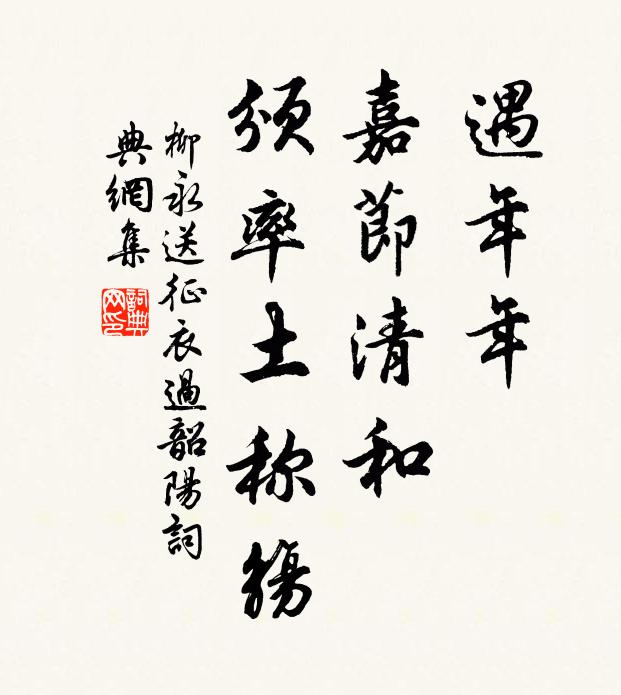 遇年年
嘉莭清和
頒率土称觴
柳永送征衣過韶陽詞
典網集
詞典
网印